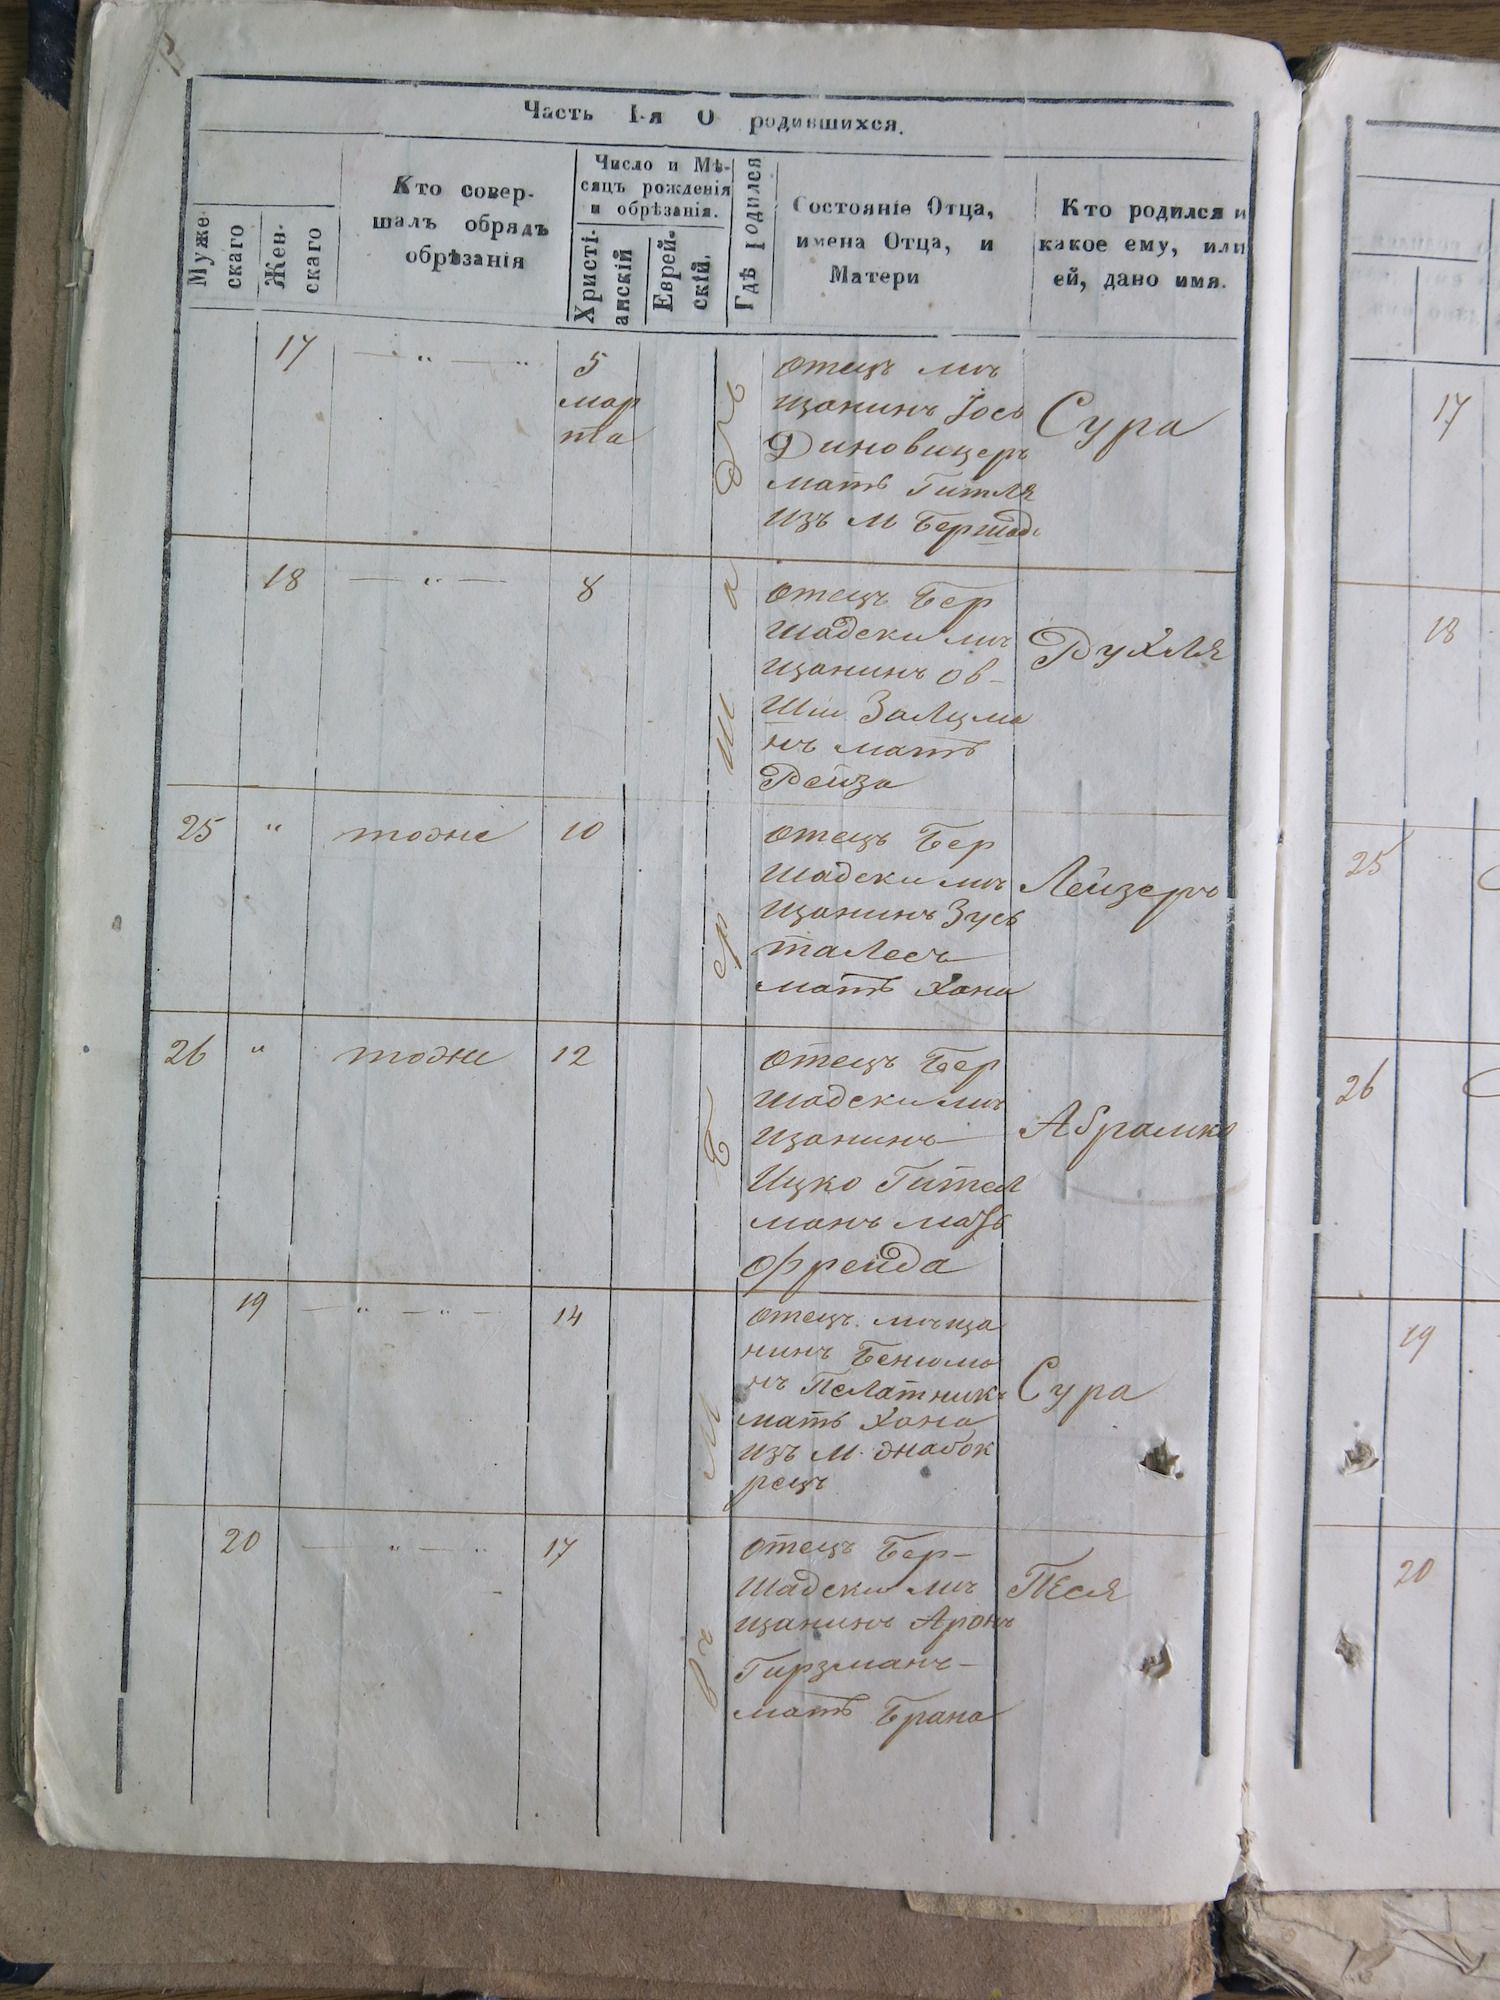 Часть I-я О родившихся.
Мужескаго
Женскаго
Кто совер-
шалъ обрядъ
обрѣзанія
Число и Мѣ-
сяцъ рожденія
и обрѣзанія.
Христі-
анскій
Еврей-
скій.
Гдѣ родился
Состояніе Отца,
имена Отца, и
Матери
Кто родился и
какое ему, или
ей, дано имя.
Въ М Бершадѣ
17 — " — " 5
мар
та
отецъ мѣ
щанинъ Іось
Диновицеръ
мать Гитля
изъ М Бершадь
Сура
18 — " — 8
отецъ Бер
шадски мѣ
щанинъ Ов-
шіи Залцма
нъ мать
Рейза
Рухля
25 " тоже 10
отецъ Бер
шадски мѣ
щанинъ Зусь
Талесъ
мать Хана
Лейзеръ
26 " тоже 12
отецъ Бер
шадски мѣ
щанинъ
Ицко Гител
манъ мать
Фрейда
Абрамко
19 — " — " — 14
отецъ мѣща
нинъ Бениоми
нъ Пелатникъ
мать Хана
изъ М.
рецъ
Сура
20 — " — " 17
отецъ Бер-
шадски мѣ
щанинъ Аронъ
Гирзманъ-
мать Брана
Песя
17
18
25
26
19
20